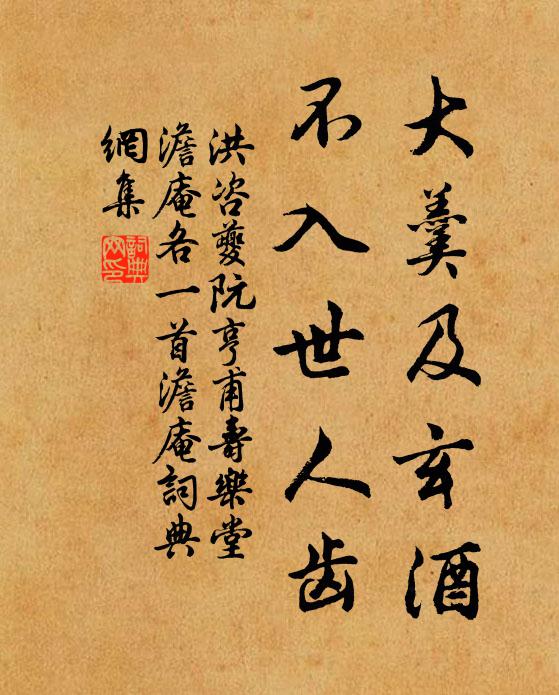 大羹及玄酒
不入世人齿
洪咨夔阮亨甫壽樂堂
澹庵各一首澹庵詞典
網集
詞典
网印